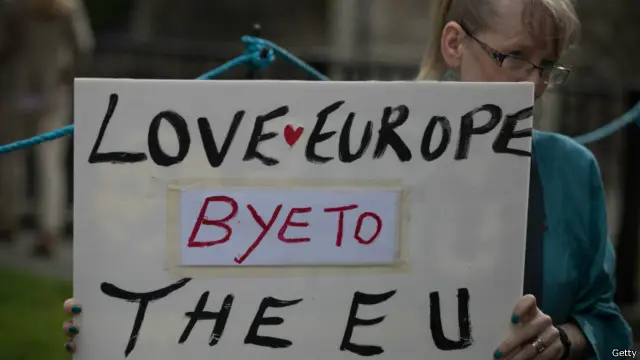 LOVE ♥ EUROPE
BYE TO
THE EU
Getty